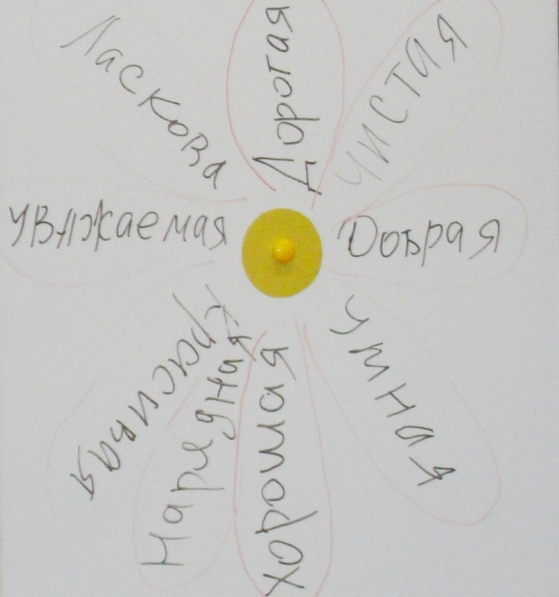 Дорогая
чистая
Добрая
Умная
хорошая
Нарядная
красивая
уважаемая
Ласкова